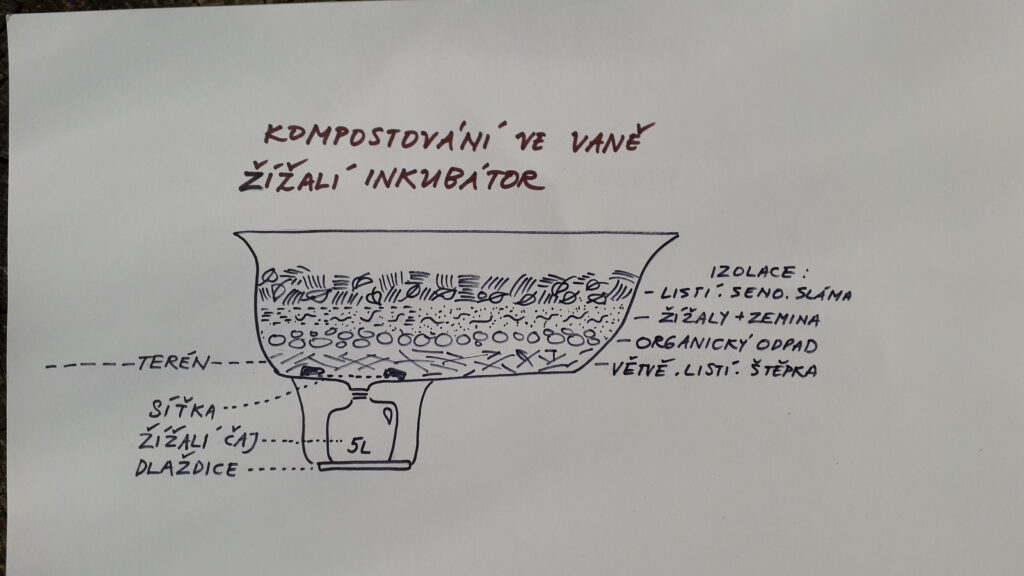 KOMPOSTOVÁNÍ VE VANĚ
ŽÍŽALÍ INKUBÁTOR
IZOLACE:
LISTÍ. SENO. SLÁMA
ŽÍŽALY + ZEMINA
ORGANICKÝ ODPAD
VĚTVĚ. LISTÍ. ŠTĚPKA
TERÉN
SÍŤKA
ŽÍŽALÍ ČAJ
5L
DLAŽDICE